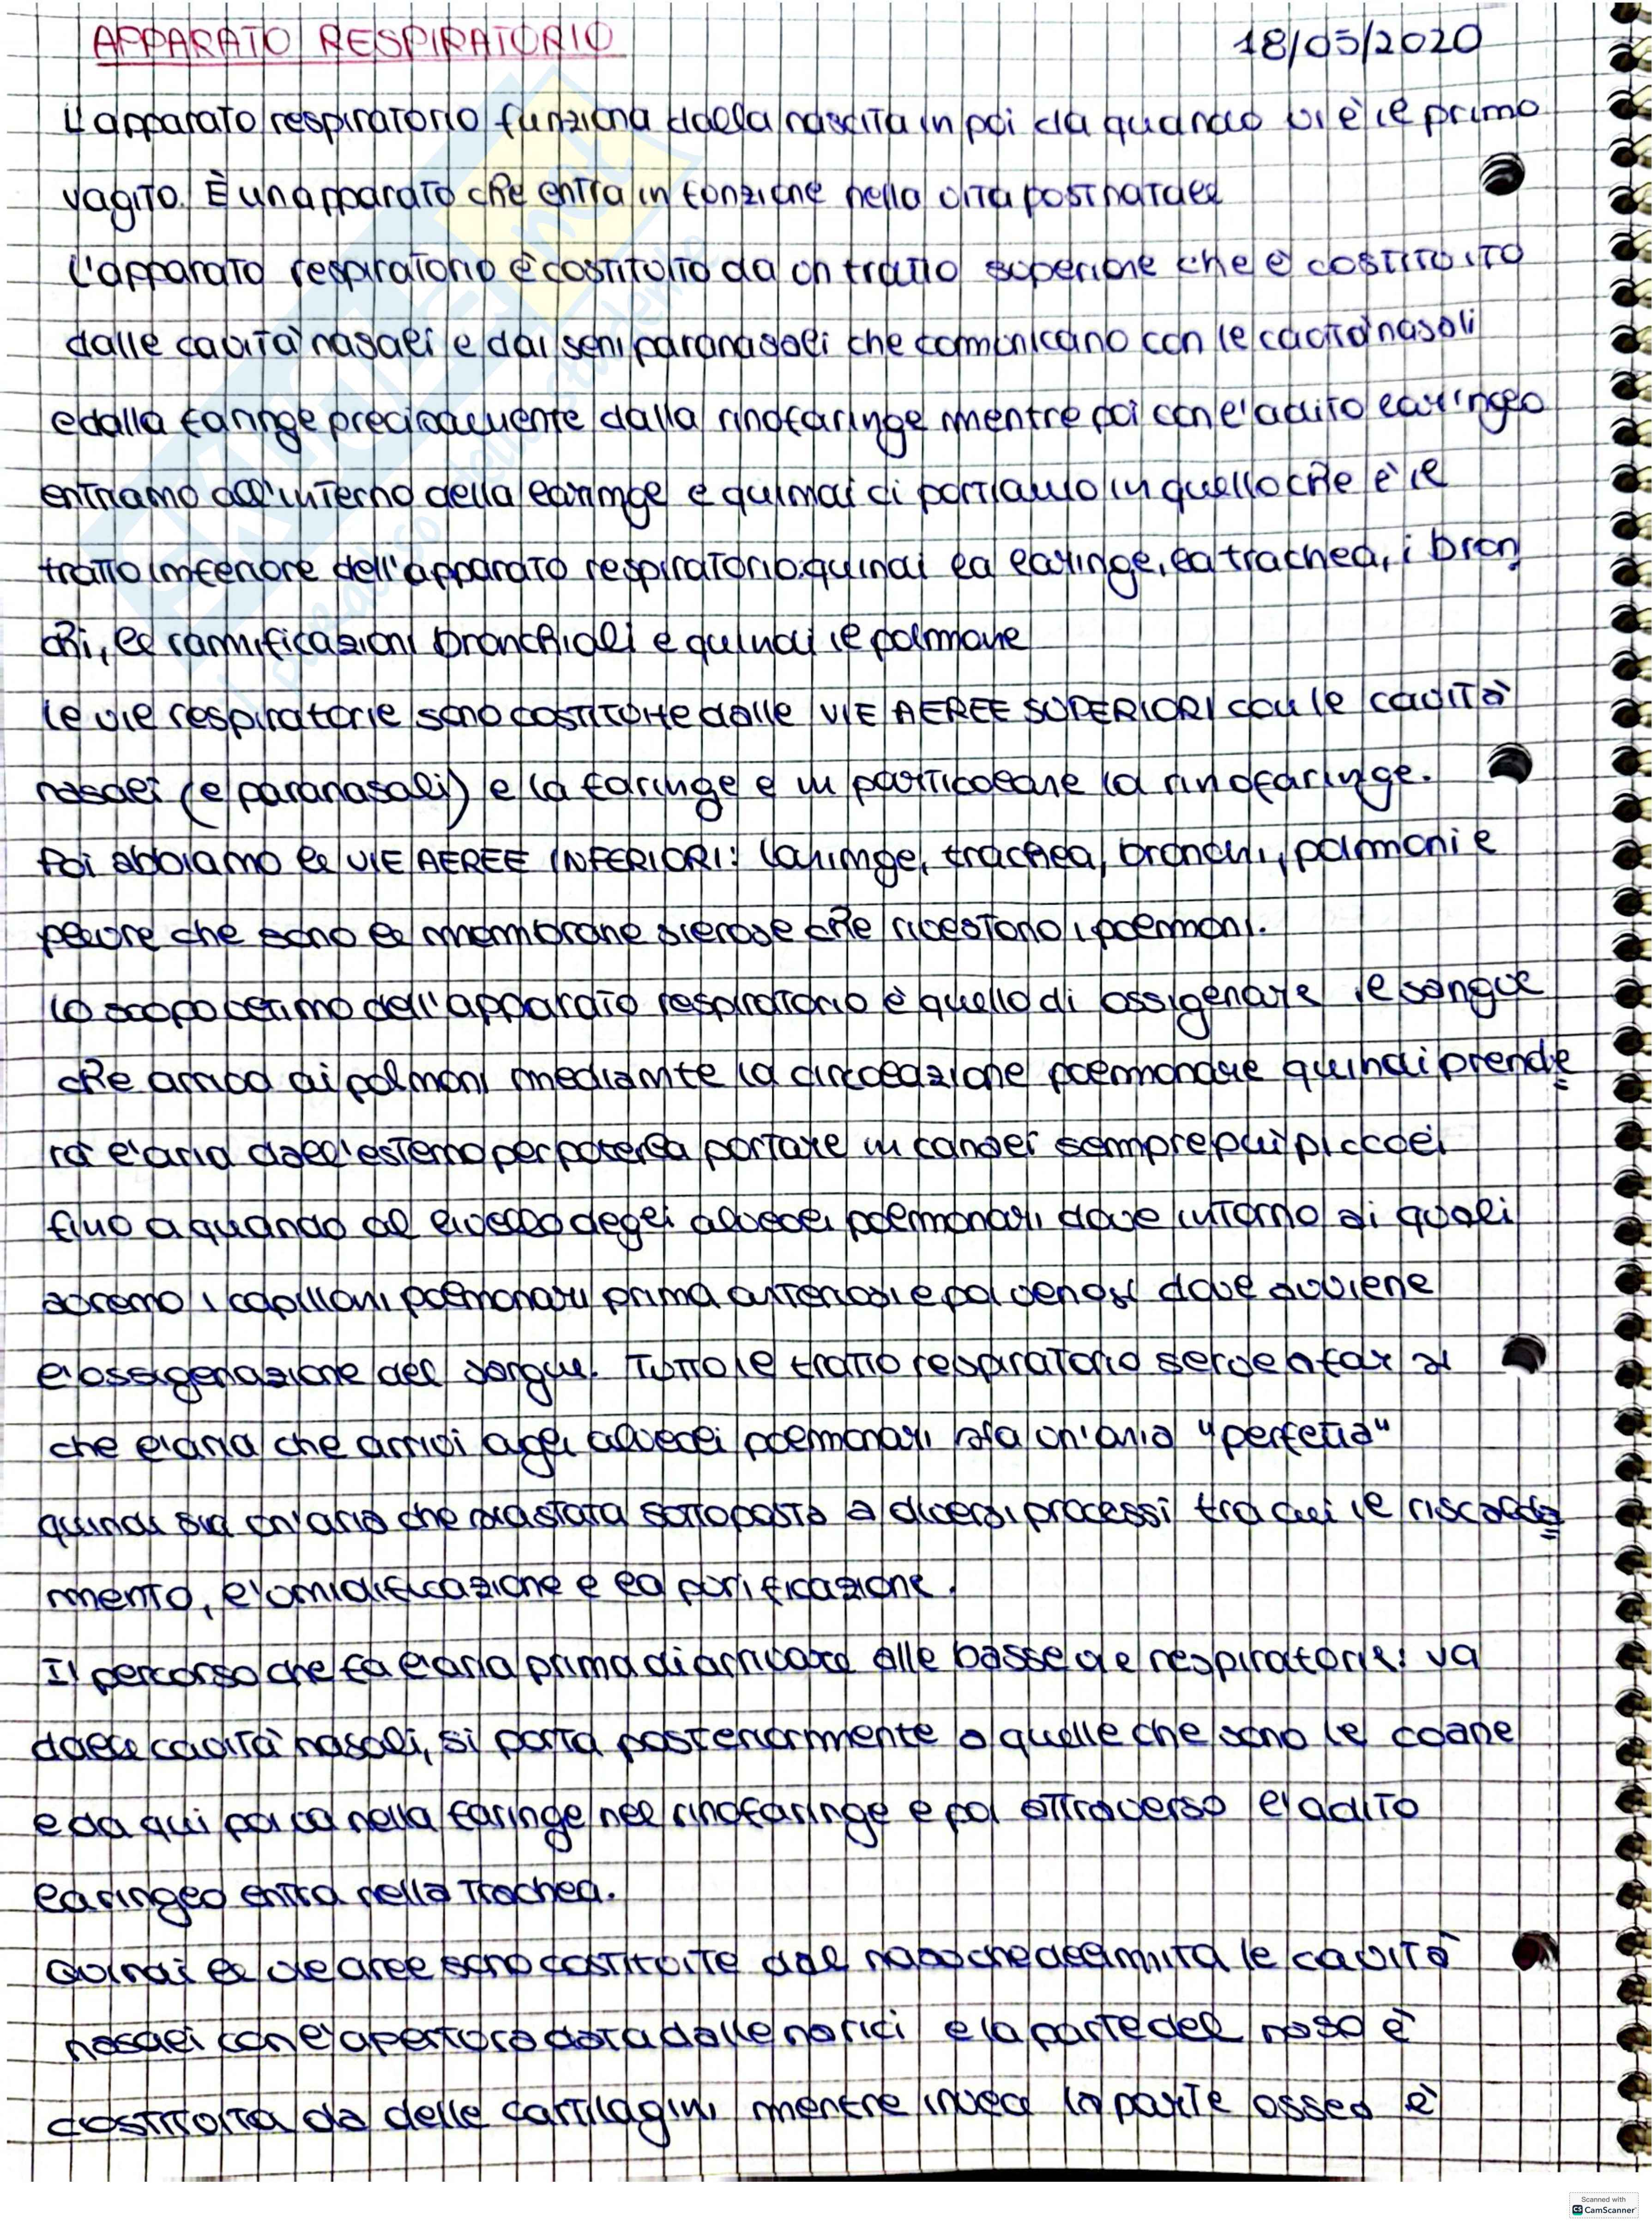 APPARATO RESPIRATORIO 18/05/2020
L'apparato respiratorio funziona dalla nascita in poi da quando vi è il primo
vagito. È un apparato che entra in funzione nella vita postnatale
L'apparato respiratorio è costituito da un tratto superiore che è costituito
dalle cavità nasali e dai seni paranasali che comunicano con le cavità nasali
e dalla faringe precisamente dalla rinofaringe mentre poi con l'adito laringeo
entriamo all'interno della laringe e quindi ci portiamo in quello che è il
tratto inferiore dell'apparato respiratorio quindi la laringe, la trachea, i bron
chi, le ramificazioni bronchiali e quindi il polmone
le vie respiratorie sono costituite dalle VIE AEREE SUPERIORI con le cavità
nasali (e paranasali) e la faringe e in particolare la rinofaringe.
Poi abbiamo le VIE AEREE INFERIORI: laringe, trachea, bronchi, polmoni e
pleure che sono le membrane sierose che rivestono i polmoni.
Lo scopo ultimo dell'apparato respiratorio è quello di ossigenare il sangue
che arriva ai polmoni mediante la circolazione polmonare quindi prende
rà l'aria dall'esterno per poterla portare in canali sempre più piccoli
fino a quando al livello degli alveoli polmonari dove intorno ai quali
avremo i capillari polmonari prima arteriosi e poi venosi dove avviene
l'ossigenazione del sangue. Tutto il tratto respiratorio serve a far sì
che l'aria che arrivi agli alveoli polmonari sia un'aria "perfetta"
quindi sia un'aria che sia stata sottoposta a diversi processi tra cui il riscalda
mento, l'umidificazione e la purificazione.
Il percorso che fa l'aria prima di arrivare alle basse vie respiratorie: va
dalle cavità nasali, si porta posteriormente a quelle che sono le coane
e da qui poi va nella faringe nel rinofaringe e poi attraverso l'adito
laringeo entra nella trachea.
Quindi le vie aree sono costituite dal naso che delimita le cavità
nasali con l'apertura data dalle narici e la parte del naso è
costituita da delle cartilagini mentre invece la parte ossea è
Scanned with
CS CamScanner